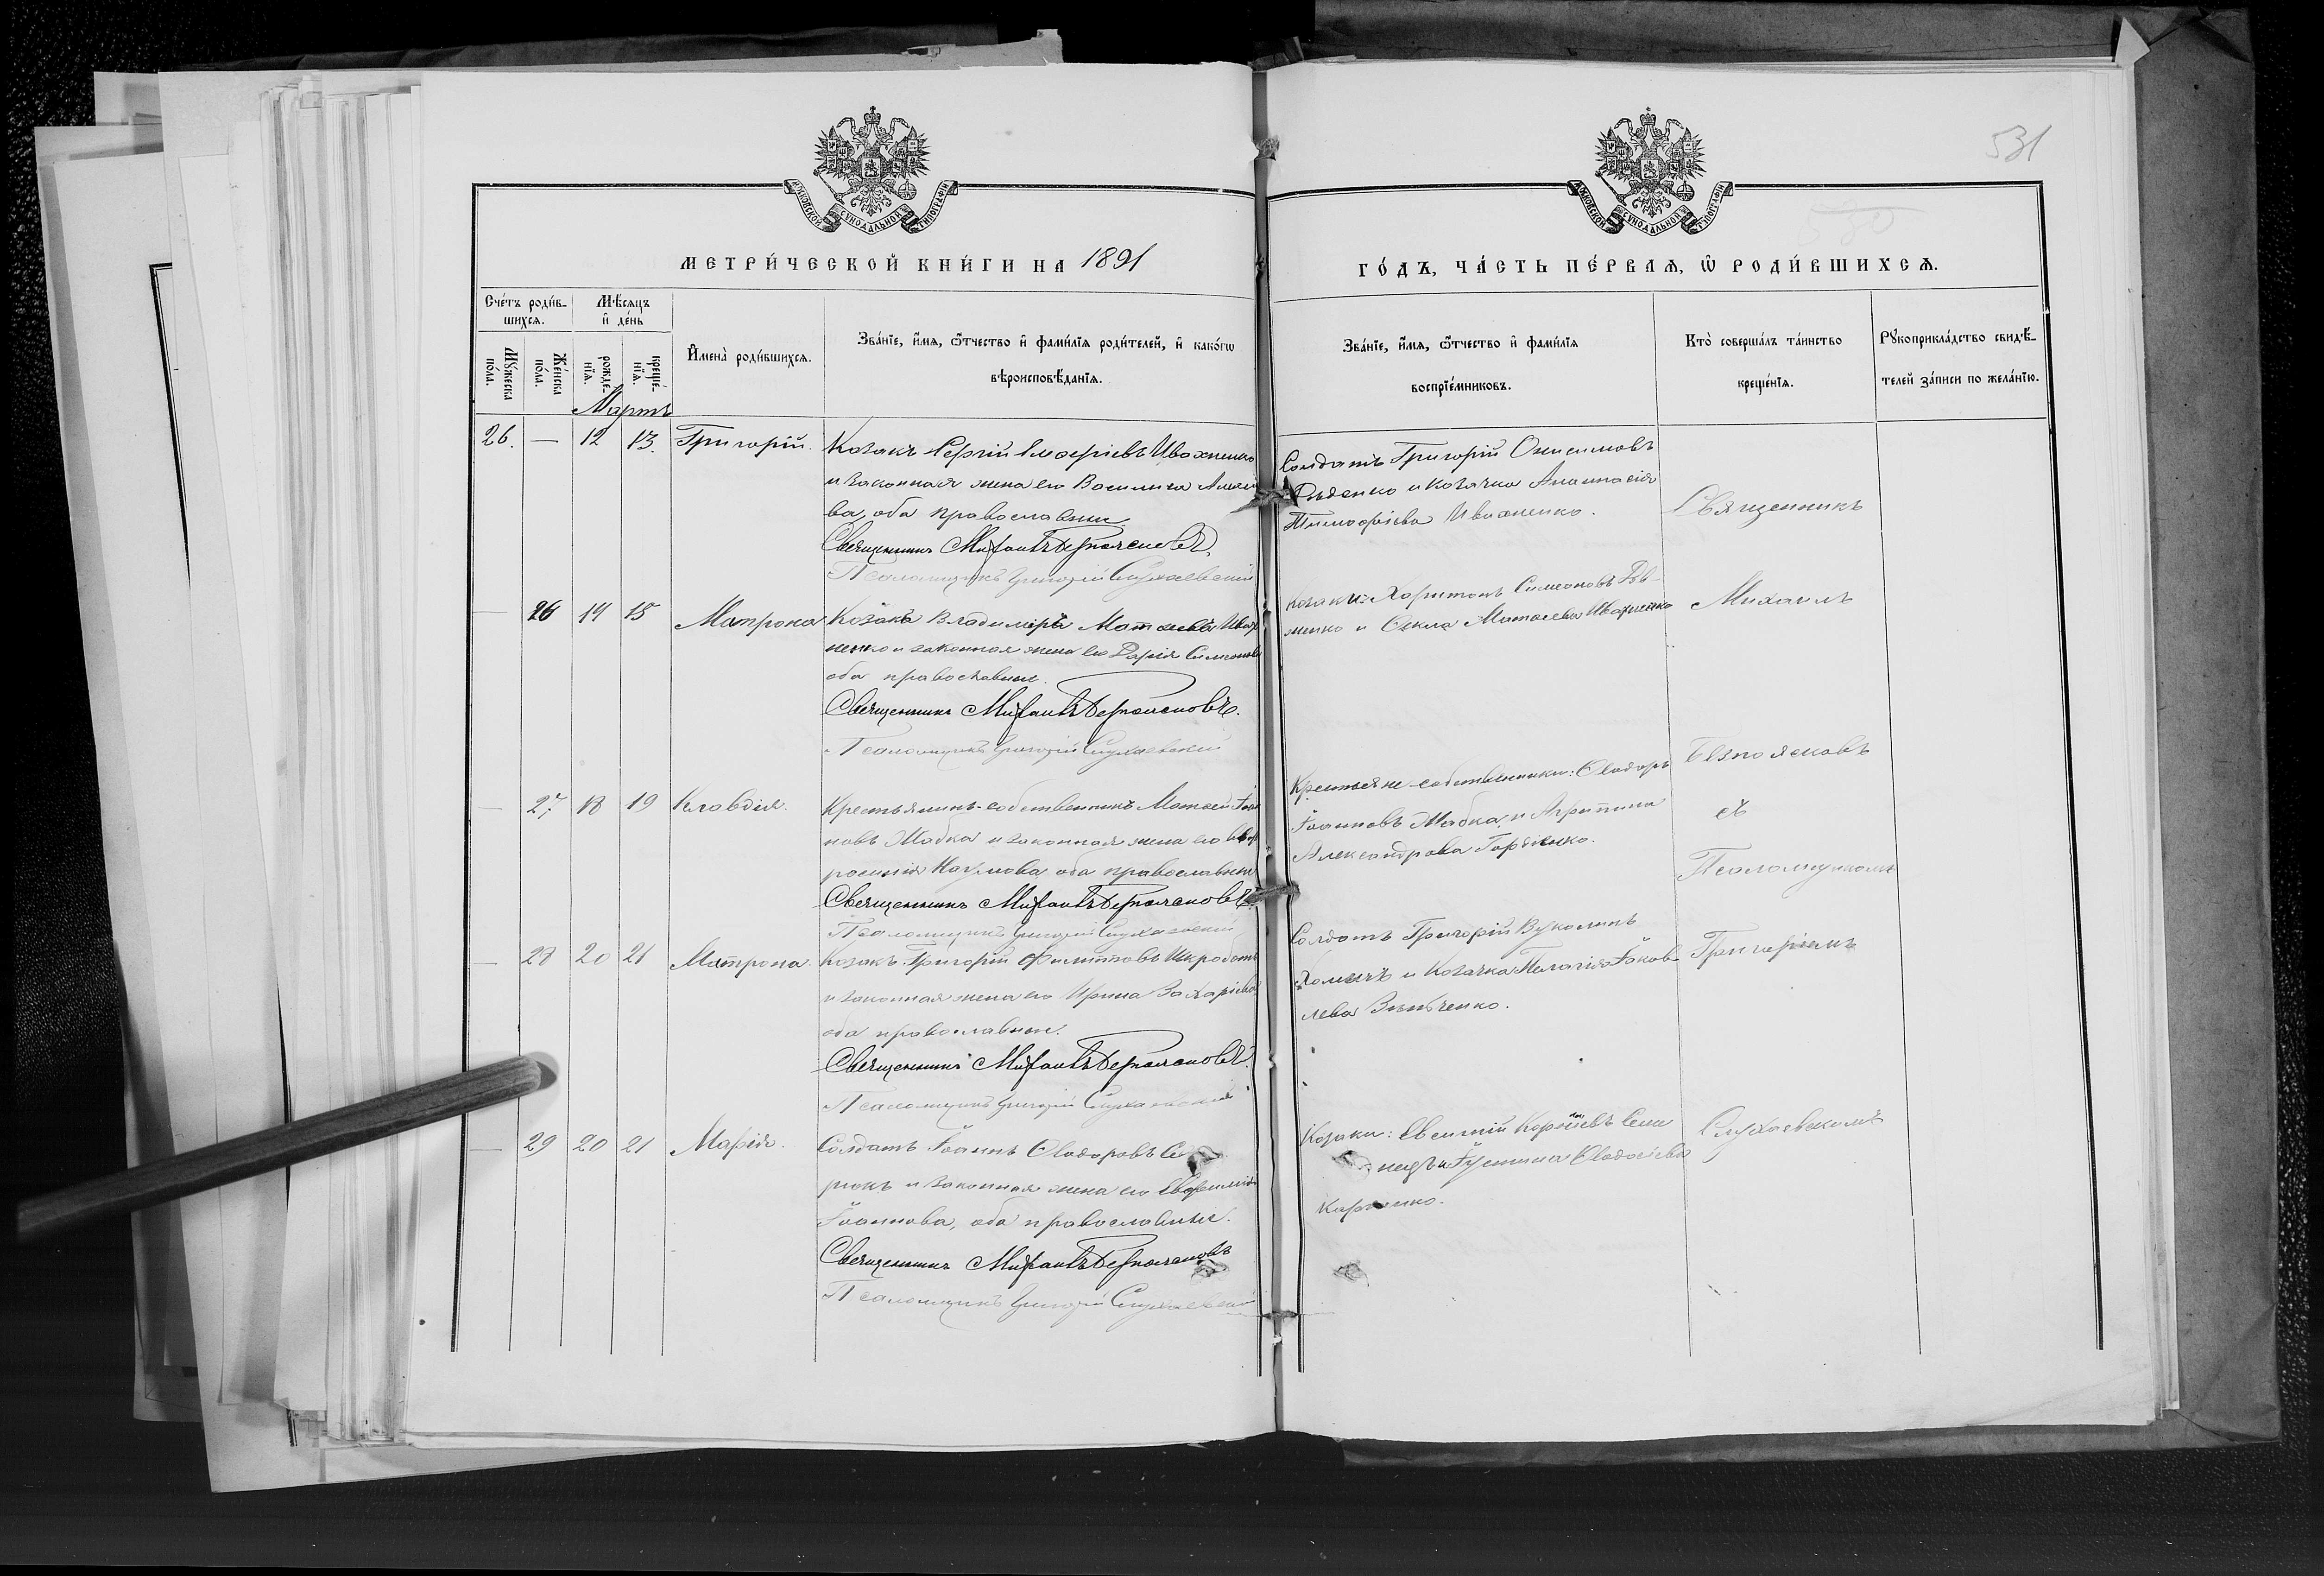 531
МОСКОВСКОЙ СѴНОДАЛЬНОЙ ТИПОГРАФІИ
МОСКОВСКОЙ СѴНОДАЛЬНОЙ ТИПОГРАФІИ
МЕТРИ́ЧЕСКОЙ КНИ́ГИ НА 1891
ГО́ДЪ, ЧА́СТЬ ПЕ́РВАѦ, Ѡ҆ РОДИ́ВШИХСѦ.
Сче́тъ роди́в-
шихсѧ.
Мѣ́сѧцъ
и҆ де́нь
Мꙋ́жеска
по́ла.
Же́нска
по́ла.
рожде́-
нїѧ.
креще́-
нїѧ.
И҆мена̀ роди́вшихсѧ.
Зва́нїе, и҆́мѧ, ѻ҆́тчество и҆ фами́лїѧ роди́телей, и҆ како́гѡ
вѣроисповѣ́данїѧ.
Зва́нїе, и҆́мѧ, ѻ҆́тчество и҆ фами́лїѧ
воспрїе́мниковъ.
Кто̀ соверша́лъ та́инство
креще́нїѧ.
Рꙋкоприкла́дство свидѣ́-
телей за́писи по жела́нїю.
Мартъ
26. — 12 13. Григорій.
Козакъ Сергій Ивахненко
и законная жена его Василиса
ва, оба православны
Священникъ Михаилъ Безпоясковъ
Псаломщикъ Григорій Слухаевскій
Солдатъ Григорій Онисимовъ
и козачка Анастасія
Тимофіева Ивахненко.
Священникъ
— 26 14 15 Матрона
Козакъ Владиміръ Матѳіевъ Ивах
ненко и законная жена его Дарія Симеонова
оба православные.
Священникъ Михаилъ Безпоясковъ.
Псаломщикъ Григорій Слухаевскій
Козаки: Харитонъ Симеоновъ
менко и Ѳекла Матѳіева Ивахненко
Михаилъ
— 27 18 19 Клавдія.
Крестьянинъ-собственникъ Матѳей Іоан
новъ Жабка и законная жена его Евф
росинія Наумова, оба православные
Священникъ Михаилъ Безпоясковъ
Псаломщикъ Григорій Слухаевскій
Крестьяне-собственники: Ѳеодоръ
Іоанновъ Жабка и Агриппина
Александрова Гордіенко.
Безпоясковъ
съ
Псаломщикомъ
— 28 20 21 Матрона.
Козакъ Григорій Филипповъ
и законная жена его Ирина Захаріева
оба православные.
Священникъ Михаилъ Безпоясковъ.
Псаломщикъ Григорій Слухаевскій
Солдатъ Григорій Вуколинъ
и Козачка Пелагія Іаков-
лева
Григоріемъ
— 29 20 21 Марія.
Солдатъ Іоаннъ Ѳеодоровъ
рюкъ и законная жена его Евфимія
Іоаннова, оба православные.
Священникъ Михаилъ Безпоясковъ
Псаломщикъ Григорій Слухаевскій
Козаки: Евсигній
и Іустина Ѳеодосіева
Слухаевскимъ